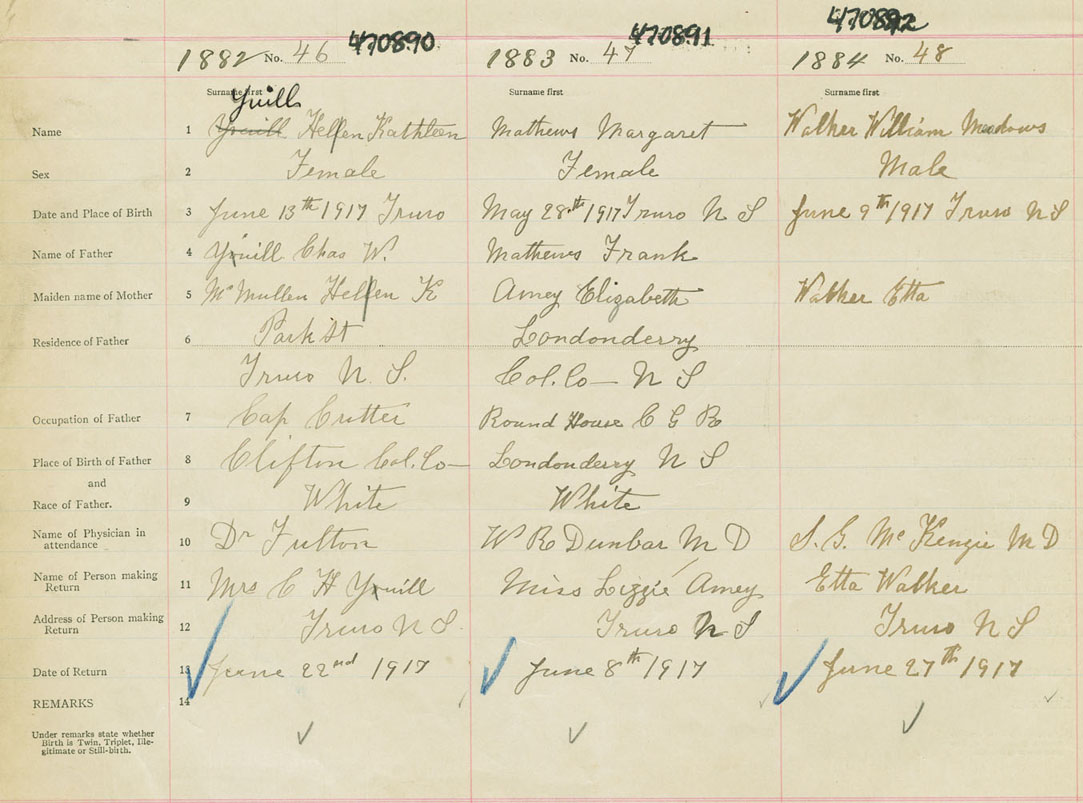 470890 470891 470892
1882 No. 46 1883 No. 47 1884 No. 48
Surname first Surname first Surname first
Yuill
Name 1 Youill Hellen Kathleen Mathews Margaret Walker William Meadows
Sex 2 Female Female Male
Date and Place of Birth 3 June 13th 1917 Truro May 28th 1917 Truro N S June 9th 1917 Truro N S
Name of Father 4 Youill Chas W. Mathews Frank
Maiden name of Mother 5 Mc Mullen Hellen K Amey Elizabeth Walker Etta
Residence of Father 6 Park St Londonderry
Truro N. S. Col. Co — N S
Occupation of Father 7 Cap Cutter Round House C G R
Place of Birth of Father 8 Clifton Col. Co — Londonderry N S
and
Race of Father. 9 White White
Name of Physician in attendance 10 Dr Fulton W R Dunbar M D S. G. Mc Kenzie M D
Name of Person making Return 11 Mrs C H Youill Miss Lizzie Amey Etta Walker
Address of Person making Return 12 Truro N S. Truro N S Truro N S
Date of Return 13 June 22nd 1917 June 8th 1917 June 27th 1917
REMARKS 14
Under remarks state whether
Birth is Twin, Triplet, Ille-
gitimate or Still-birth.